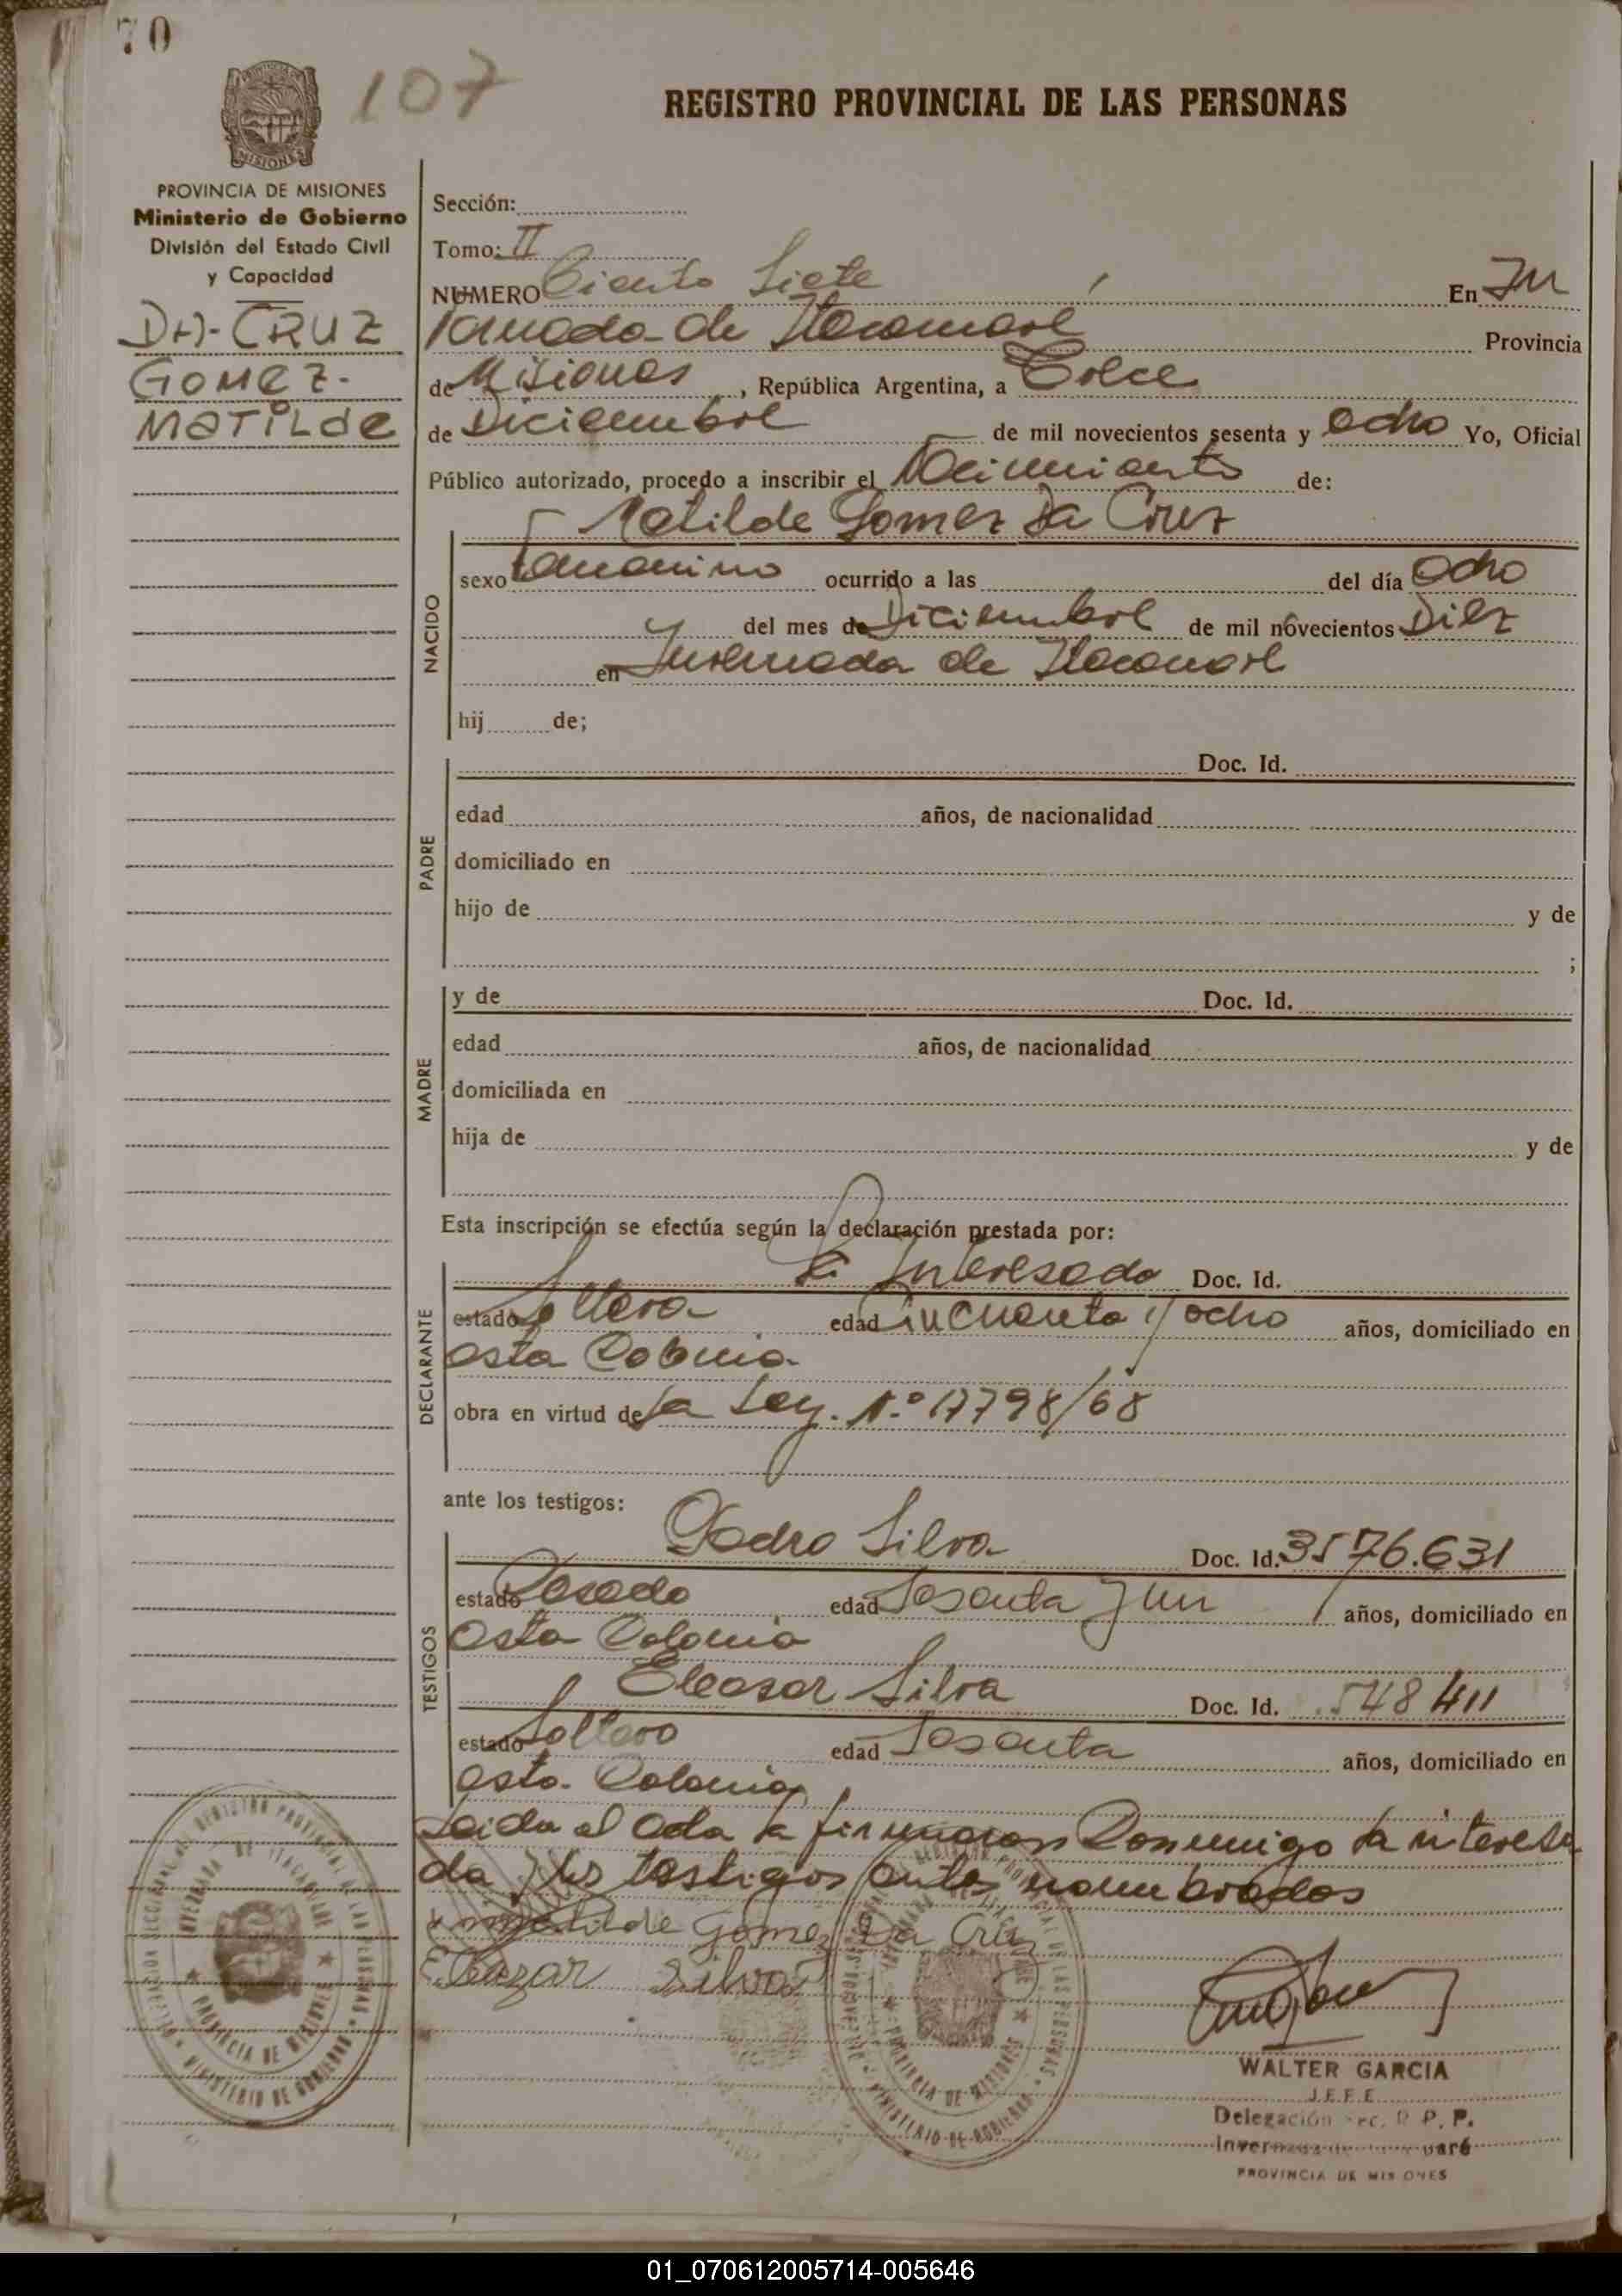 70
107
REGISTRO PROVINCIAL DE LAS PERSONAS
PROVINCIA DE MISIONES
Ministerio de Gobierno
División del Estado Civil
y Capacidad
DA-CRUZ
GOMEZ-
MATILde
Sección:
Tomo: II
NUMERO Ciento Siete En In
vernada de Itacaruaré Provincia
de Misiones, República Argentina, a Doce
de Diciembre de mil novecientos sesenta y ocho Yo, Oficial
Público autorizado, procedo a inscribir el Nacimiento de:
NACIDO
Matilde Gomez Da Cruz
sexo femenino ocurrido a las del día Ocho
del mes de Diciembre de mil novecientos Diez
en Invernada de Itacaruaré
hij de;
PADRE
Doc. Id.
edad años, de nacionalidad
domiciliado en
hijo de y de
;
MADRE
y de Doc. Id.
edad años, de nacionalidad
domiciliada en
hija de y de
Esta inscripción se efectúa según la declaración prestada por:
DECLARANTE
La Interesada Doc. Id.
estado Soltera edad Cincuenta y ocho años, domiciliado en
esta Colonia
obra en virtud de la Ley. N.º 17798/68
ante los testigos:
TESTIGOS
Pedro Silva Doc. Id. 3576.631
estado Casado edad Sesenta y un años, domiciliado en
esta Colonia
Eleasar Silva Doc. Id. 548411
estado Soltero edad Sesenta años, domiciliado en
esta Colonia
Leida el acta la firmaron Conmigo la interesa
da y los testigos antes nombrados
Matilde Gomez Da Cruz
Eleazar Silva
WALTER GARCIA
JEFE
Delegación Sec. R. P. P.
PROVINCIA DE MISIONES
01_070612005714-005646